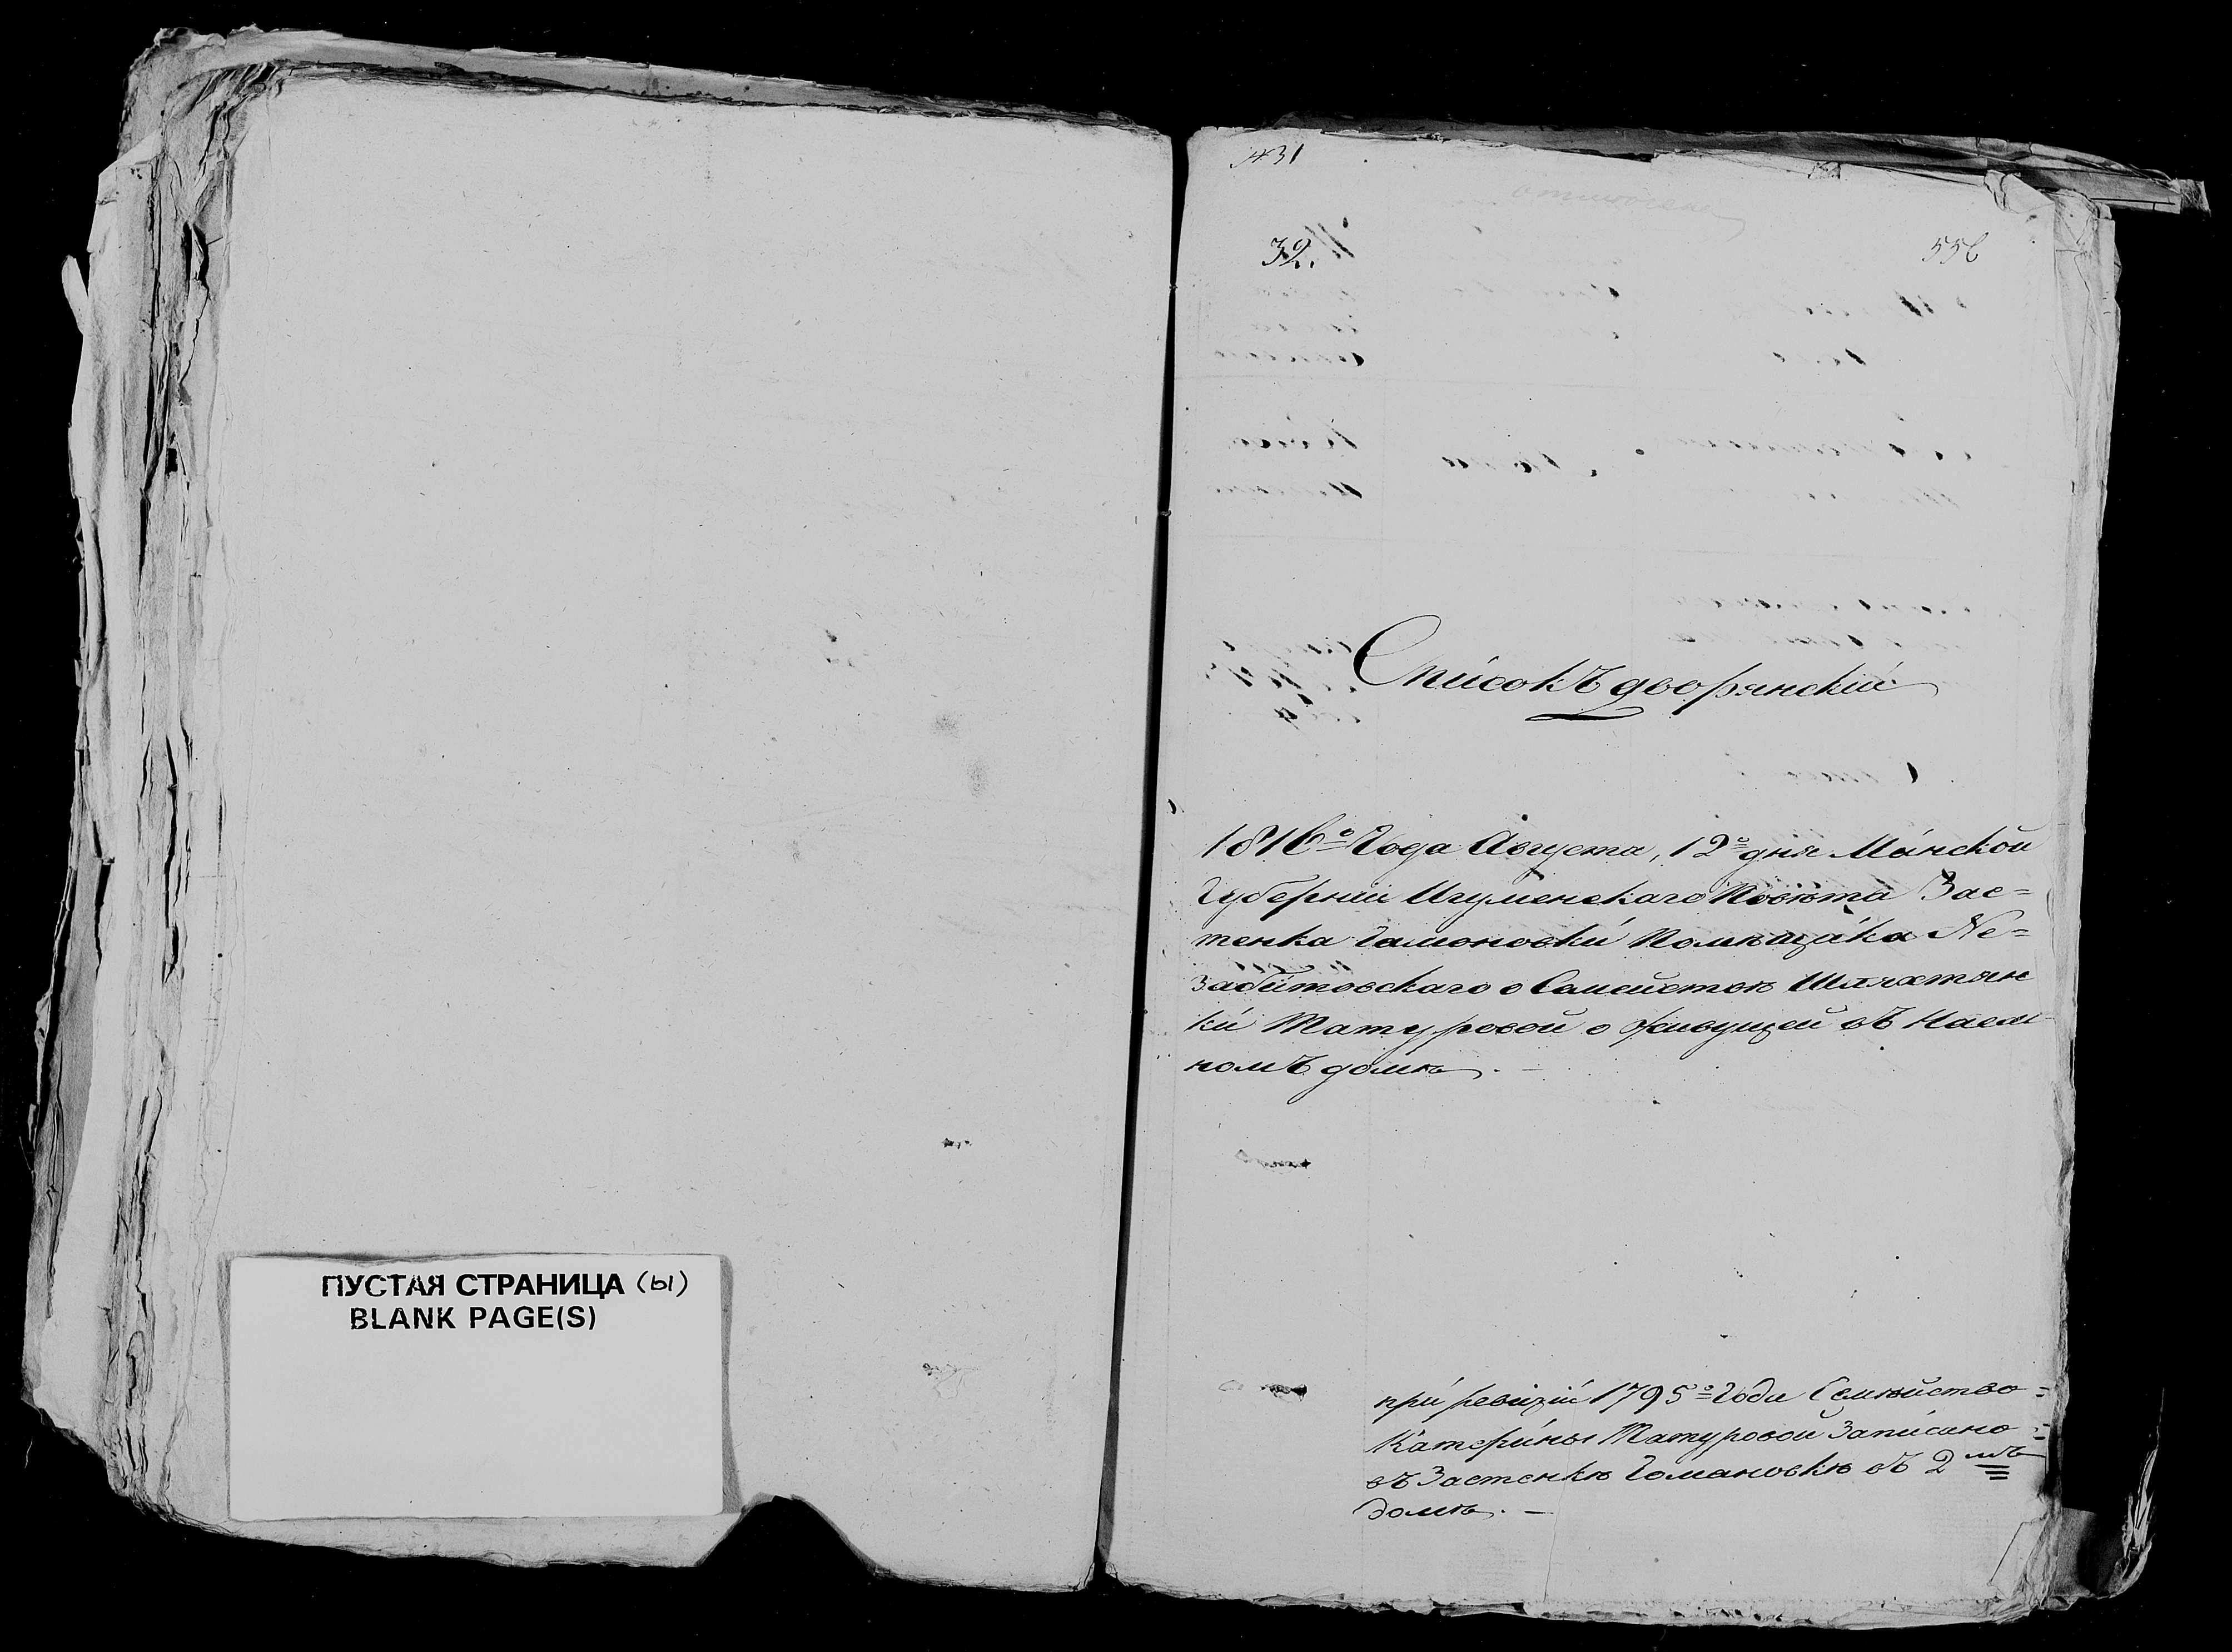 ПУСТАЯ СТРАНИЦА (ы)
BLANK PAGE(S)
№31
32.
556
Списокъ дворянскій
1816º Года Августа, 12º дня Минской
Губерніи Игуменскаго Повѣта Зас=
тенка Гамоновки Помѣщика Не=
забитовскаго о Самействѣ Шляхтян
ки Матуровой о живущей въ Наем
номъ домѣ. —
при ревизіи 1795º Года Семѣйство=
Катерины Матуровой Записано=
въ Застенкѣ Гомановкѣ въ 2мъ
домѣ. —